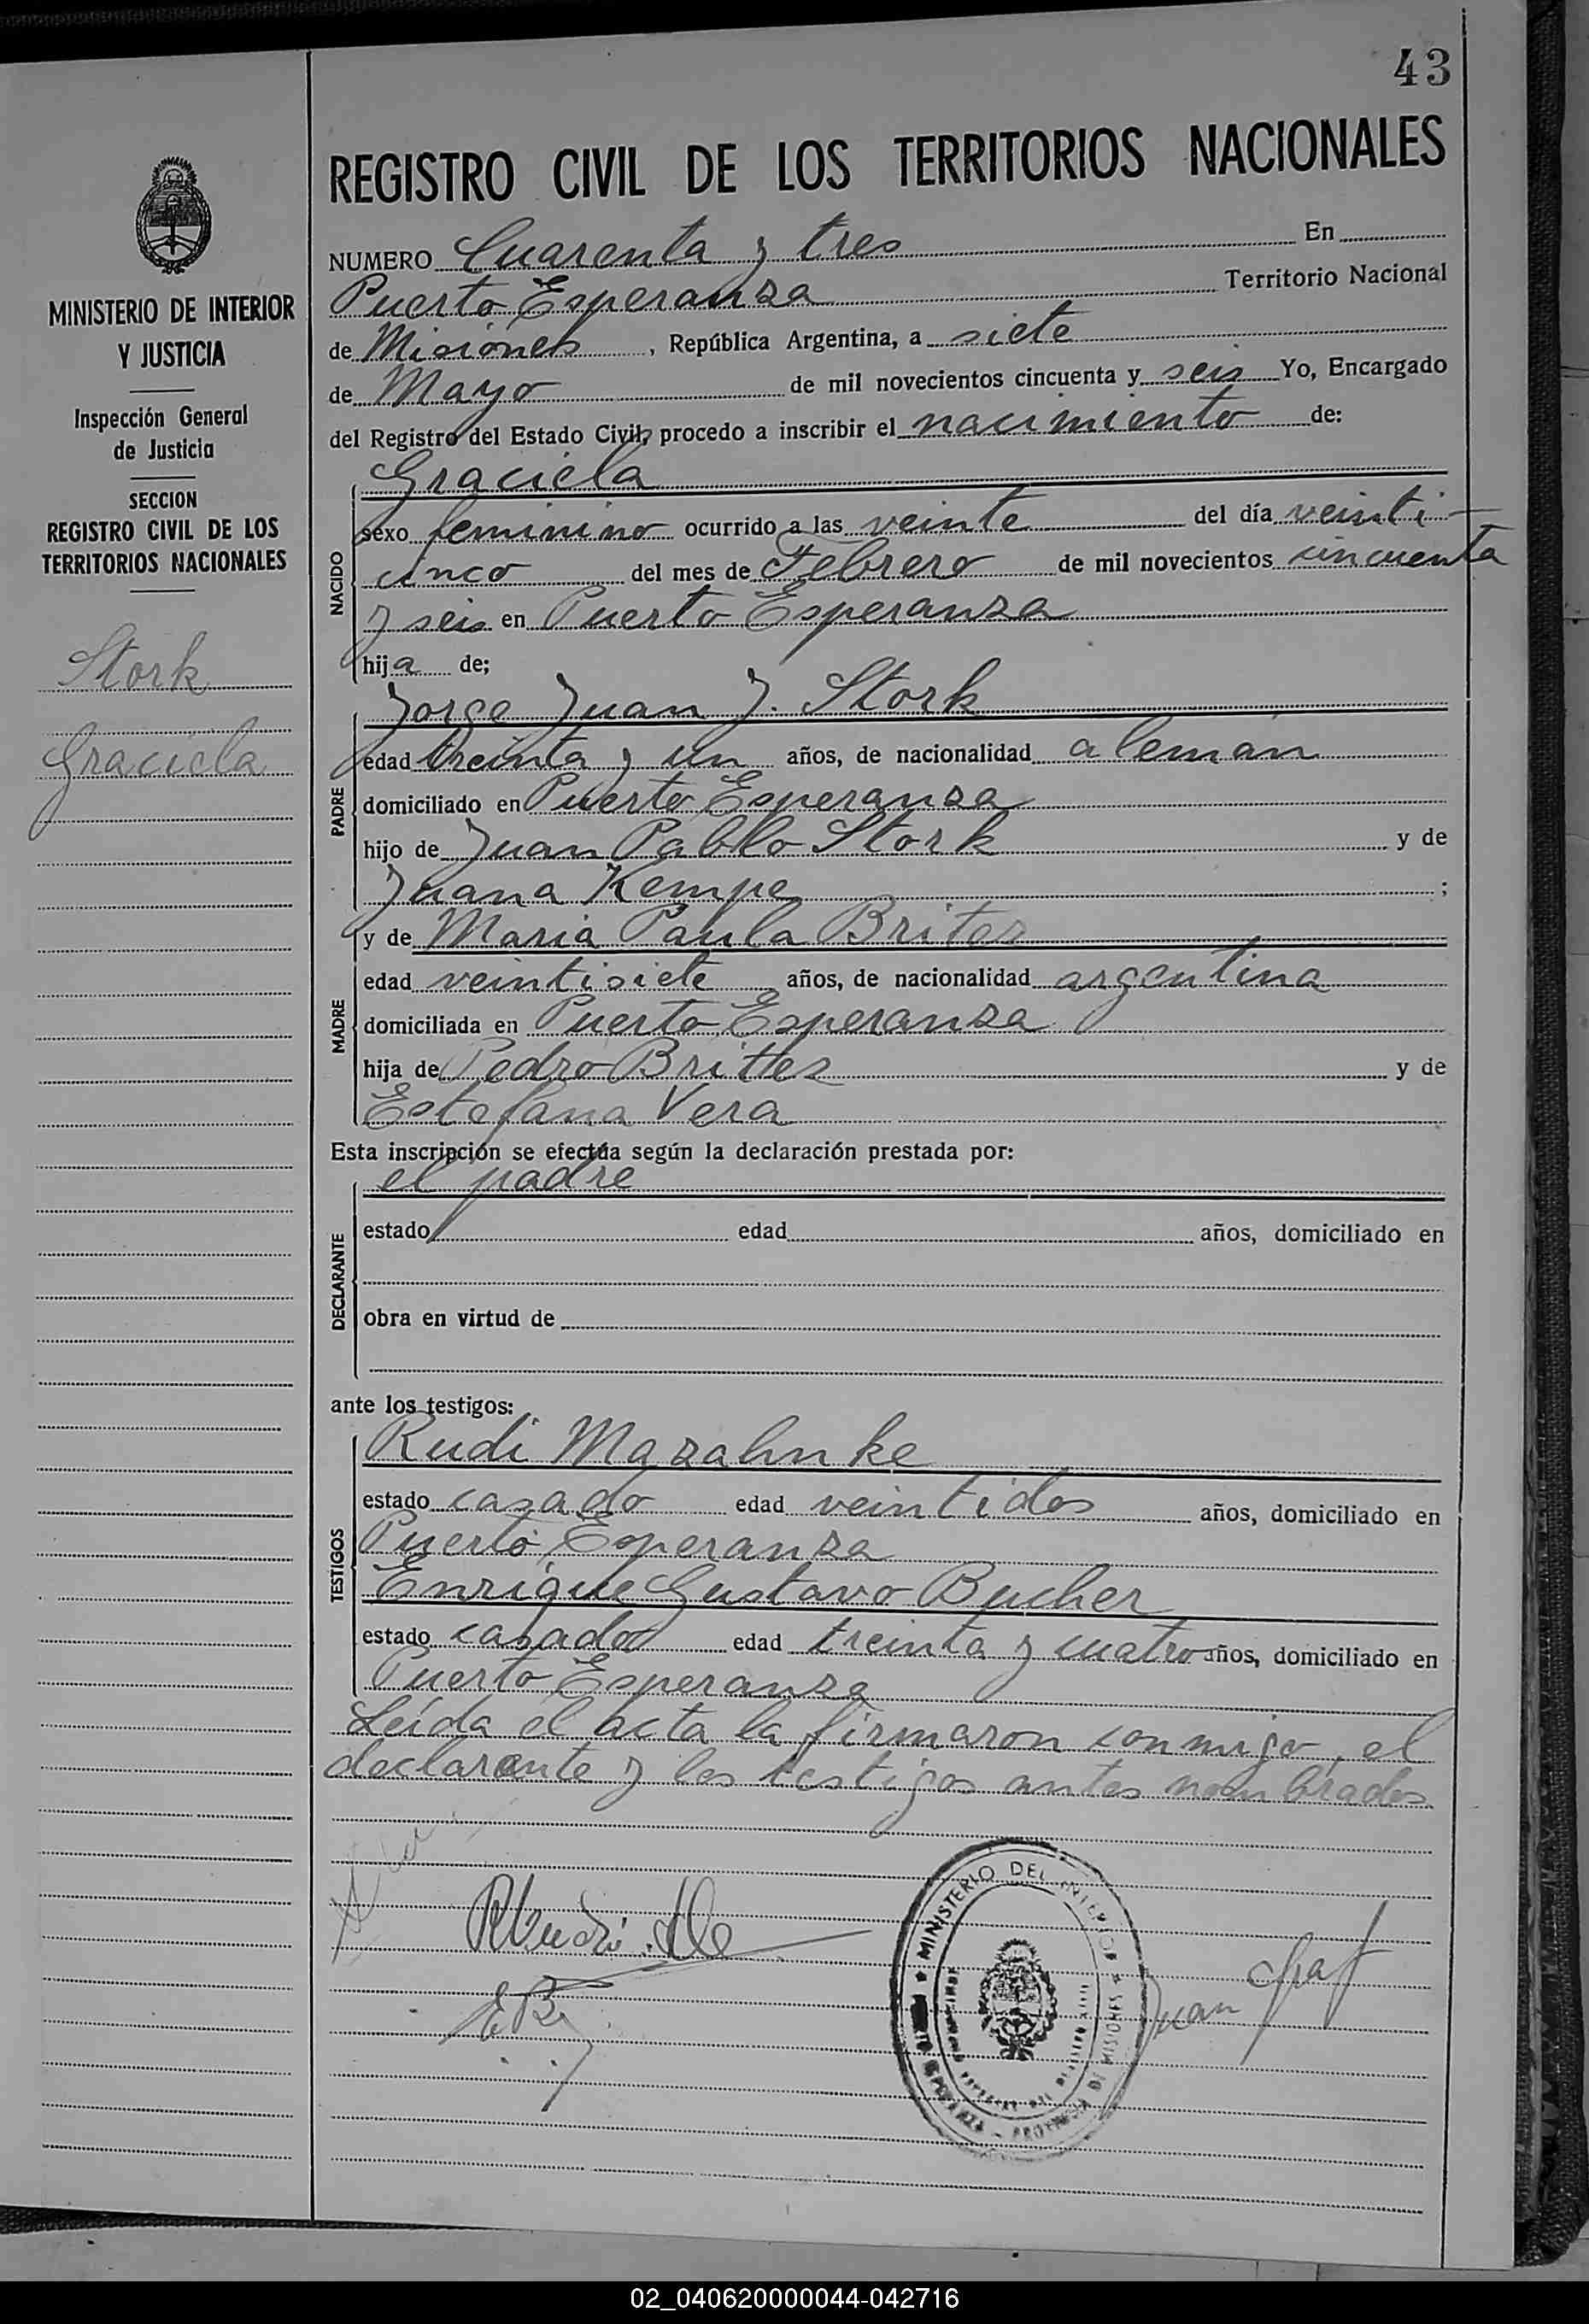 43
REGISTRO CIVIL DE LOS TERRITORIOS NACIONALES
MINISTERIO DE INTERIOR
Y JUSTICIA
Inspección General
de Justicia
SECCION
REGISTRO CIVIL DE LOS
TERRITORIOS NACIONALES
Stork
Graciela
NUMERO Cuarenta y tres En
Puerto Esperanza Territorio Nacional
de Misiones, República Argentina, a siete
de Mayo de mil novecientos cincuenta y seis Yo, Encargado
del Registro del Estado Civil, procedo a inscribir el nacimiento de:
NACIDO
Graciela
sexo feminino ocurrido a las veinte del día veinti-
cinco del mes de Febrero de mil novecientos cincuenta
y seis en Puerto Esperanza
hija de;
PADRE
Jorge Juan J. Stork
edad treinta y un años, de nacionalidad alemán
domiciliado en Puerto Esperanza
hijo de Juan Pablo Stork y de
Juana Kempe ;
MADRE
y de Maria Paula Britez
edad veintisiete años, de nacionalidad argentina
domiciliada en Puerto Esperanza
hija de Pedro Brittez y de
Estefana Vera
Esta inscripción se efectúa según la declaración prestada por:
DECLARANTE
el padre
estado edad años, domiciliado en
obra en virtud de
ante los testigos:
TESTIGOS
Rudi Mazahnke
estado casado edad veintidos años, domiciliado en
Puerto Esperanza
Enrique Gustavo Bucher
estado casado edad treinta y cuatro años, domiciliado en
Puerto Esperanza
Leída el acta la firmaron conmigo, el
declarante y los testigos antes nombrados
MINISTERIO DEL INTERIOR
PROVINCIA DE MISIONES
Juan Graf
02_040620000044-042716